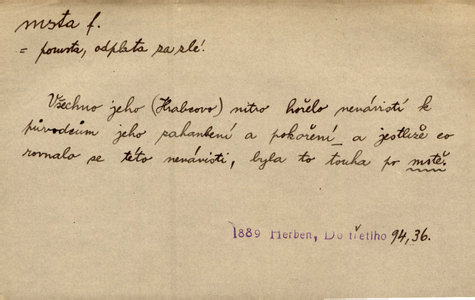 msta f.
= pomsta, odplata za zlé.
Všechno jeho (Hrabcovo) nitro hořelo nenávistí k
původcům jeho zahanbení a pokoření_ a jestliže co
rovnalo se této nenávisti, byla to touha po mstě.
1889 Herben, Do třetího 94,36.